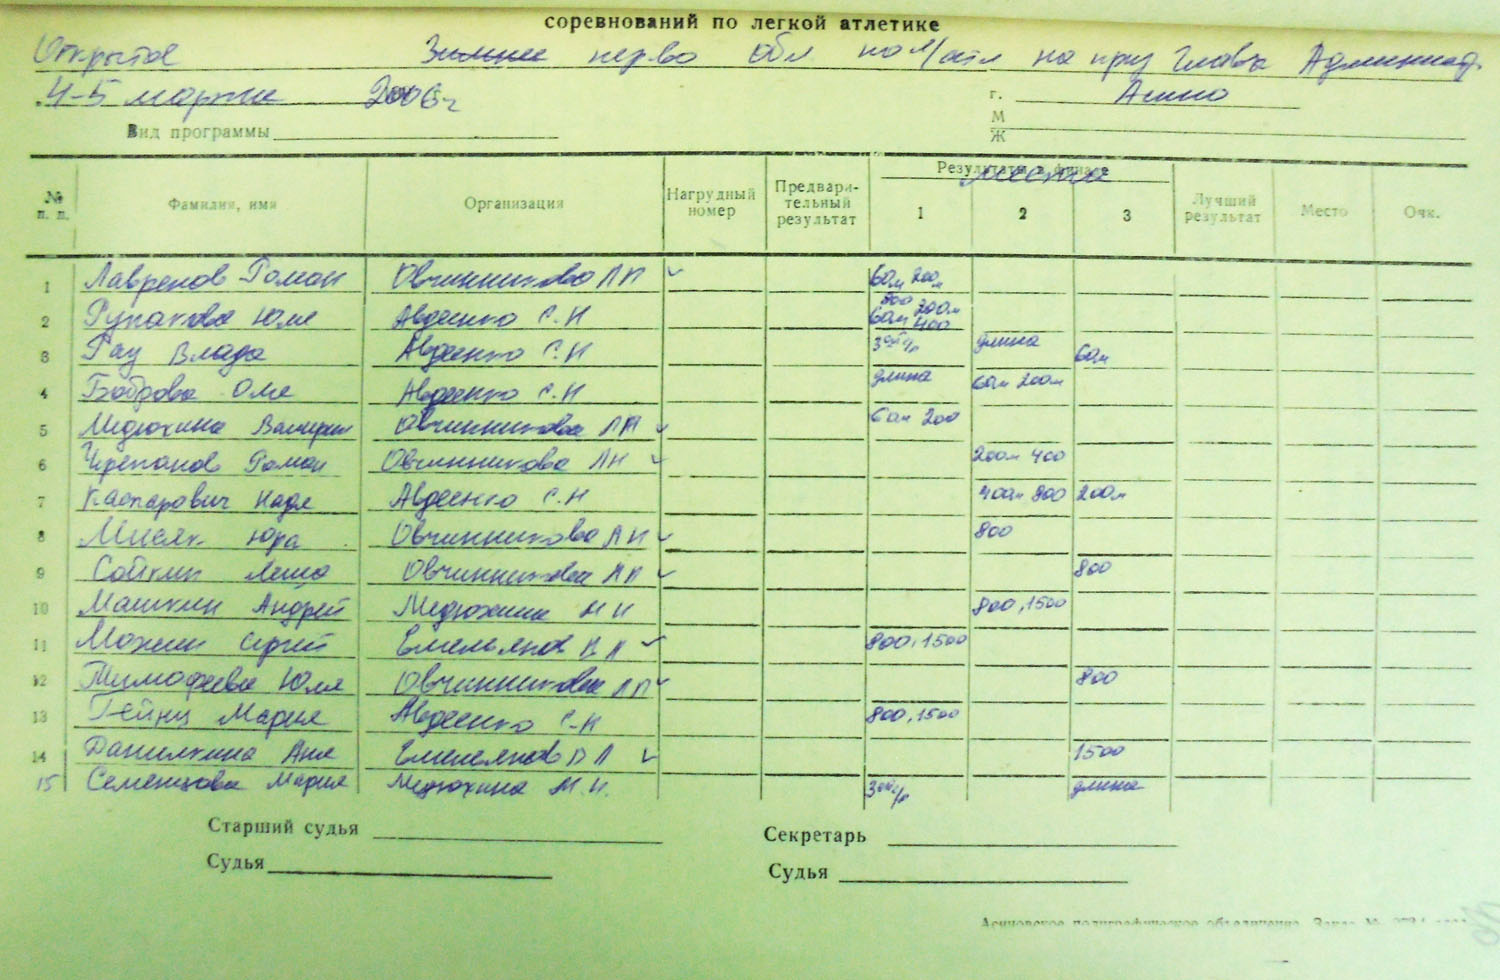 соревнований по легкой атлетике
Открытое Зимнее перво обл по л/атл на приз Главы Админист.
4-5 марта 2006г г. Асино
Вид программы М
Ж
№ п. п. Фамилия, имя Организация Нагрудный номер Предварительный результат Результаты в финале места 1 2 3 Лучший результат Место Очк.
1 Лавренов Роман Овчинникова ЛП ✓ 60м 200м
2 Юля Авдеенко С.Н 500 200м 60м 400
3 Рау Влада Авдеенко С.Н 3ой/п длина 60м
4 Боброва Оля Авдеенко С.Н длина 60м 200м
5 Медюхина Овчинникова ЛП ✓ 60м 200
6 Черепанов Роман Овчинникова ЛП ✓ 200м 400
7 Каспарович Надя Авдеенко С.Н 400м 800 200м
8 Мисяк Юра Овчинникова ЛП ✓ 800
9 Сойкин Леша Овчинникова ЛП ✓ 800
10 Машкин Андрей Медюхина М Н 800, 1500
11 Можин Сергей Емельянов В Л ✓ 800, 1500
12 Тимофеева Юля Овчинникова ЛП ✓ 800
13 Гейнц Мария Авдеенко С-Н 800, 1500
14 Данилкина Аня Емельянов В Л ✓ 1500
15 Семенцова Мария Медюхина М.Н. 3ой/п длина
Старший судья Секретарь
Судья Судья
Асиновское полиграфическое объединение. Заказ №